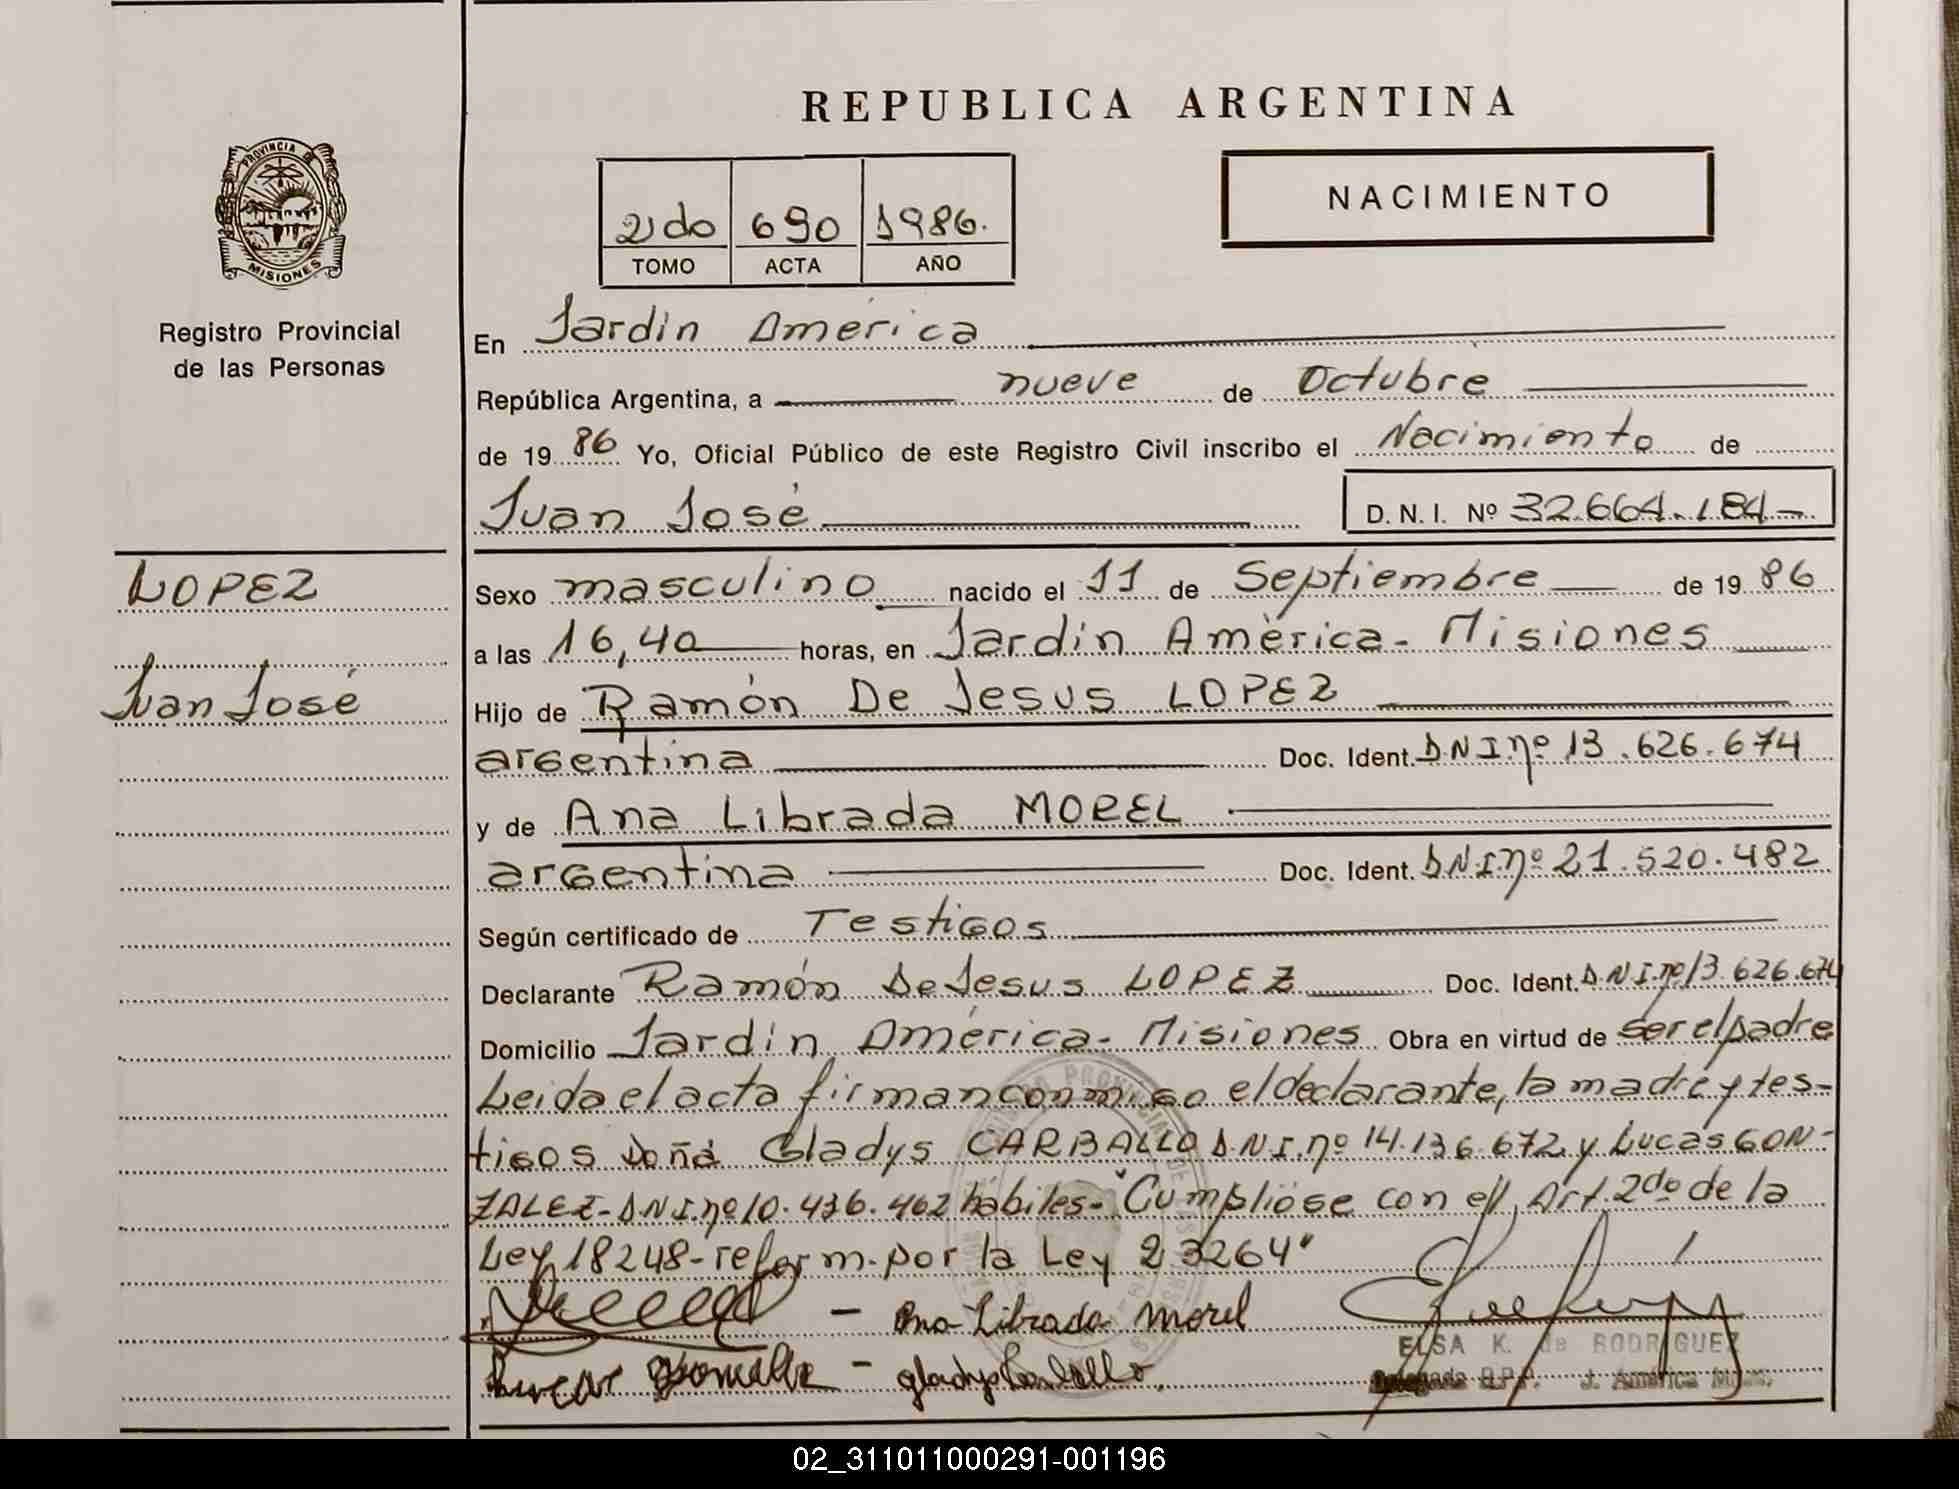 REPUBLICA ARGENTINA
PROVINCIA DE
MISIONES
Registro Provincial
de las Personas
2do 690 1986.
TOMO ACTA AÑO
NACIMIENTO
En Jardin América
República Argentina, a nueve de Octubre
de 19 86 Yo, Oficial Público de este Registro Civil inscribo el Nacimiento de
Juan José D. N. I. Nº 32.664.184-
LOPEZ
Juan José
Sexo masculino nacido el 11 de Septiembre de 19 86
a las 16,40 horas, en Jardin América - Misiones
Hijo de Ramón De Jesus LOPEZ
argentina Doc. Ident. DNI.nº 13.626.674
y de Ana Librada MOREL
argentina Doc. Ident. DNI.nº 21.520.482
Según certificado de Testigos
Declarante Ramón De Jesus LOPEZ Doc. Ident. DNI.nº 13.626.674
Domicilio Jardin América - Misiones Obra en virtud de ser el padre
Leida el acta firman conmigo el declarante, la madre y tes-
tigos Doña Gladys CARBALLO D.N.I.nº 14.136.672 y Lucas GON-
ZALEZ-DNI.nº 10.436.462 habiles- "Cumpliose con el Art. 2do de la
Ley 18248-reform. por la Ley 23264"
- Ana Librada Morel
Lucas Gonzalez - gladys Carballo.
ELSA K. de RODRIGUEZ
Delegada R.P.P. J. América Mnes.
02_311011000291-001196